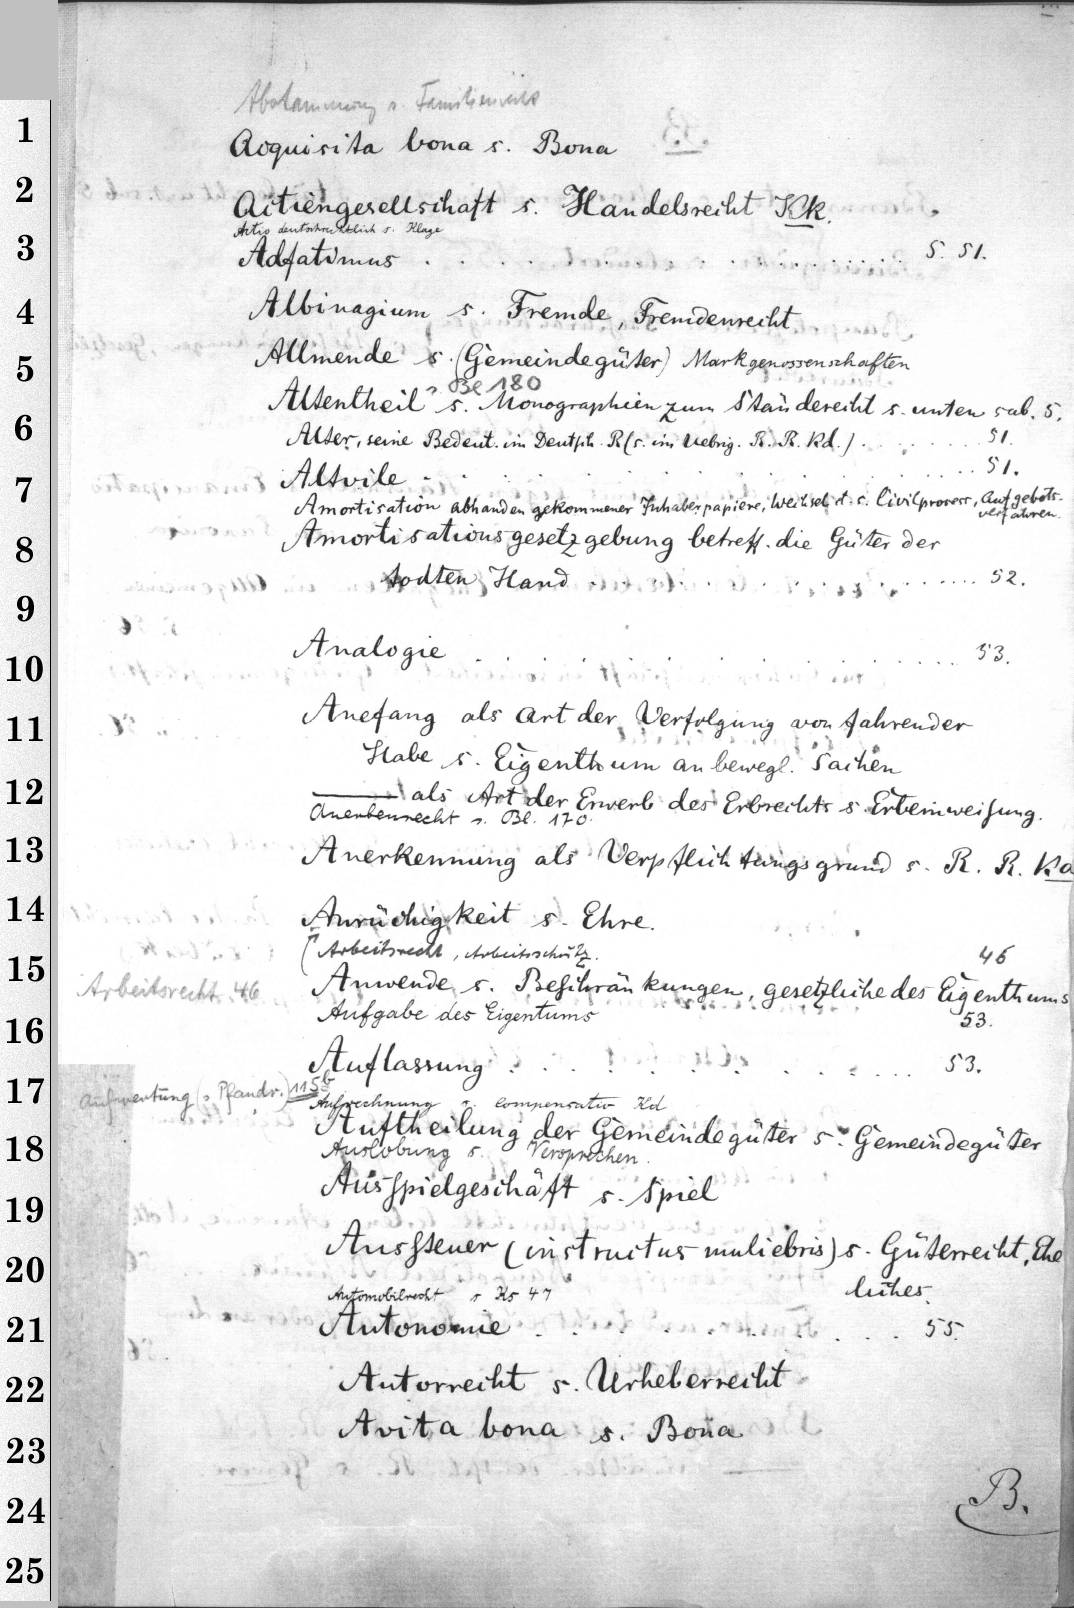 Abstammung s. Familien
1 Acquisita bona s. Bona
2 Actiengesellschaft s. Handelsrecht Kk.
Actio deutschrechtlich s. Klage
3 Adfatimus . . . . . . . . . . S. 51.
4 Albinagium s. Fremde, Fremdenrecht
5 Allmende s. (Gemeindegüter) Markgenossenschaften
Bl 180
Altentheil s. Monographien zum Ständerecht s. unten sub. S.
6 Alter, seine Bedeut. im Deutsch. R (s. im Uebrig. R. R. Kd.) . . . . 51.
7 Altvile . . . . . . . . . . 51.
Amortisation abhanden gekommener Inhaberpapiere, Wechsel s. Civilprocess, Aufgebots-
verfahren.
8 Amortisationsgesetzgebung betreff. die Güter der
todten Hand . . . . . . . . . . 52.
9
10 Analogie . . . . . . . . . . 53.
11 Anefang als Art der Verfolgung von fahrender
Habe s. Eigenthum an bewegl. Sachen
12 ——— als Art der Erwerb des Erbrechts s. Erbeinweisung.
Anerbenrecht s. Bl. 170.
13 Anerkennung als Verpflichtungsgrund s. R. R. Ka
14 Anrüchigkeit s. Ehre.
(Arbeitsrecht, Arbeitsschutz. 46
15 Anwende s. Beschränkungen, gesetzliche des Eigenthums
Arbeitsrecht. 46
16 Aufgabe des Eigentums 53.
Auflassung . . . . . . . . . . 53.
17 Aufwertung (s. Pfandr.) 115b
Aufrechnung s. compensatio Kd
Auftheilung der Gemeindegüter s. Gemeindegüter
18 Auslobung s. Versprechen.
Ausspielgeschäft s. Spiel
19
Aussteuer (instructus muliebris) s. Güterrecht, Ehe
20 liches.
Automobilrecht s Ks 47
21 Autonomie . . . . . . . . . . 55.
22 Autorrecht s. Urheberrecht
23 Avita bona s. Bona
24 B.
25